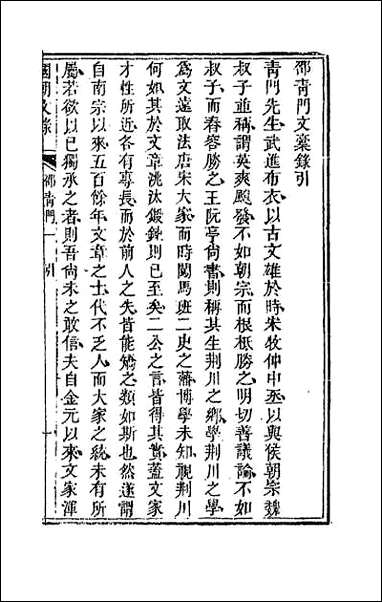 邵青門文稾錄引
青門先生武進布衣以古文雄於時宋牧仲中丞以與侯朝宗魏
叔子並稱謂英爽颷發不如朝宗而根柢勝之明切善議論不如
叔子而春容勝之王阮亭尚書則稱其生荆川之鄉學荆川之學
爲文遠取法唐宋大家而時闖馬班二史之藩博學未知視荆川
何如其於文章洮汰鍛鍊則已至矣二公之言皆得其實蓋文家
才性所近各有專長而於前人之失皆能矯之類如斯也然遂謂
自南宗以來五百餘年文章之士代不乏人而大家之統未有所
屬若欲以已獨承之者則吾尚未之敢信夫自金元以來文家渾
國朝文錄
邵青門
引
一